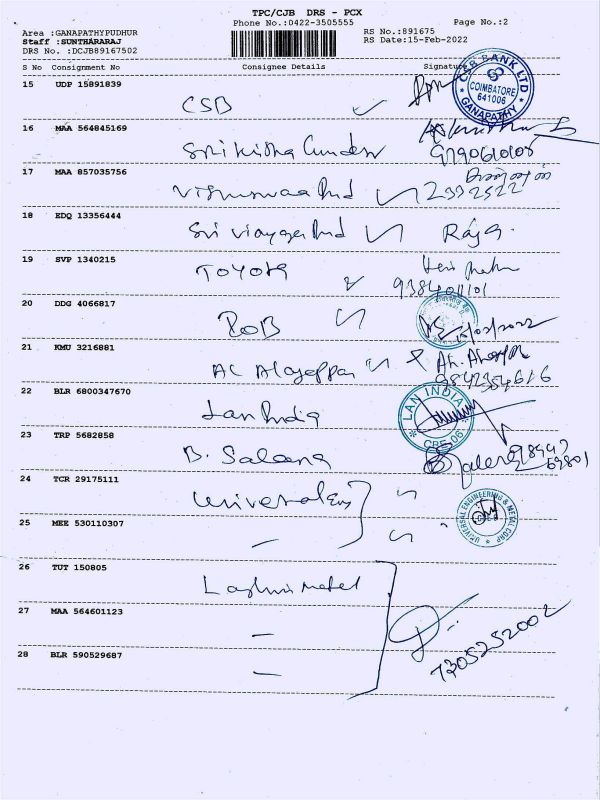 TPC/CJB DRS - PCX
Phone No.:0422-3505555
Page No.:2
Area :GANAPATHYPUDHUR
Staff :SUNTHARARAJ
DRS No. :DCJB89167502
RS No.:891675
RS Date:15-Feb-2022
S No Consignment No Consignee Details Signature
15 UDP 15891839
CSB
CSB BANK LTD
COIMBATORE
641006
* GANAPATHY *
16 MAA 564845169
9790610108
17 MAA 857035756
2332522
18 EDQ 13356444
Raja.
19 SVP 1340215
TOYOTA
9384011101
20 DDG 4066817
BOB
21 KMU 3216881
AL Alageppan
9842354616
22 BLR 6800347670
Lan India
LAN INDIA
* CBE-06 *
23 TRP 5682858
B. Saleena
24 TCR 29175111
Universal Eng
UNIVERSAL ENGINEERING & METAL CORP
25 MEE 530110307
—
26 TUT 150805
Laxhmi metal
27 MAA 564601123
—
7305252002
28 BLR 590529687
—